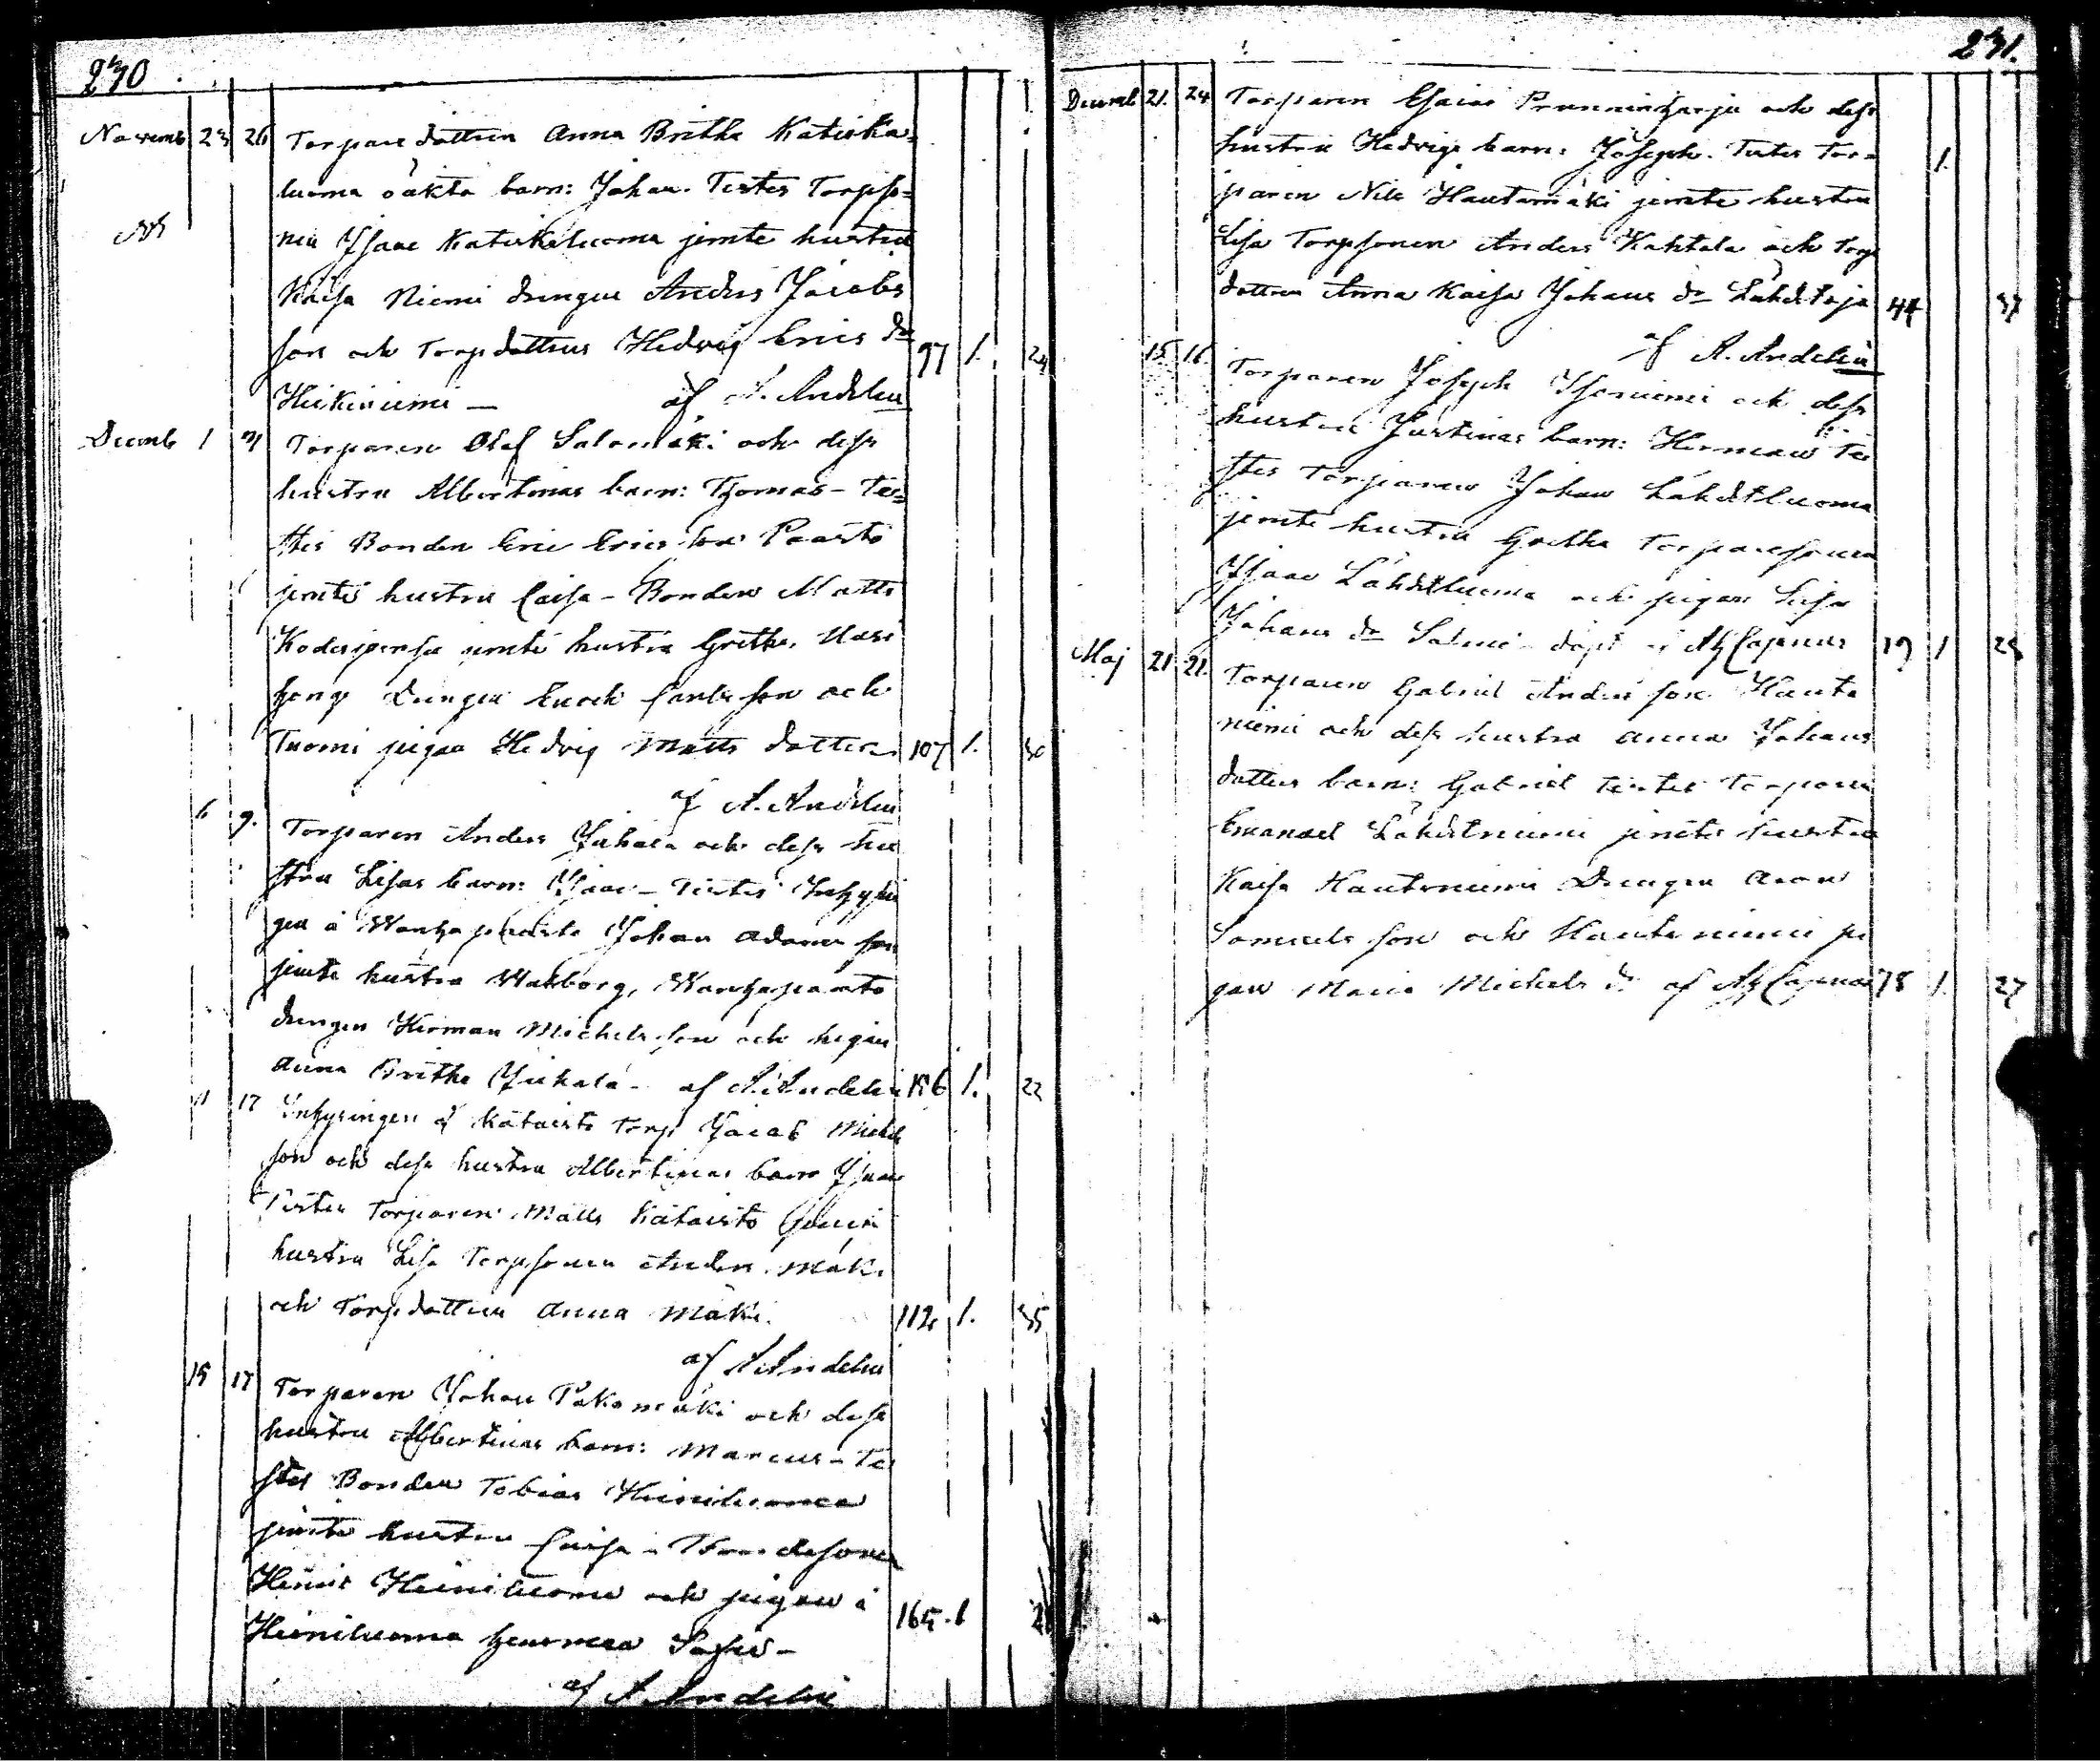 270
Novemb 23 26 Torpare dottren Anna Britha Katiska=
luoma oäkta barn: Johan. Testes Torpso=
nen Isaac Katiskoluoma jemte hustru
Kaisa Niemi drengen Anders Jacobs
son och Torpdottren Hedvig Erics dr
Heikiniemi — af A. Andelin 97 1. 24
Decemb 1 Torparen Olof Salomäki och dess
hustru Albertinas barn: Thomas - Te=
stes Bonden Eric Ericsson Paasto
jemte hustru Caisa - Bonden Matts
jemte hustru Gretha,
Drengen Enoch Carlsson och
Tuomi pigan Hedvig Matts dotter 107 1. 30
af A. Andelin
6 9. Torparen Anders Juhala och dess hu
stru Lisas barn: Isaac - Testes Inhysin
gen å Wanhapaasto Johan Adams son
jemte hustru Walborg, Wanhapaasto
drengen Herman Michels son och pigan
Anna Britha Juhala - af A. Andelin 186 1. 22
11 17 Inhysingen å Kataisto Torp Jacob Michels
son och dess hustru Albertinas barn Isaac
Testes Torparen Matts Kataisto
hustru Lisa Torpsonen Anders Mäki
och Torpdottren Anna Mäki. 112 1. 35
af A. Andelin
15 17 Torparen Johan Pakomäki och dess
hustru Albertinas barn: Marcus - Te
stes Bonden Tobias Heiniluoma
jemte hustru Caisa - Bondesonen
Henric Heiniluoma och pigan å
Heiniluoma hemman Sofia -
af A. Andelin 165. 1
271.
Decemb 21. 24 Torparen Esaias Prunninharju och dess
hustru Hedvigs barn: Joseph. Testes Tor= 1.
paren Nils Hautamäki jemte hustru
Lisa Torpsonen Anders Kahtala och Torp
dottren Anna Kaisa Johans dr Lähdetoja 44 37
af A. Andelin
15 16. Torparen Joseph Isoniemi och dess
hustru Justinas barn: Herman Te
stes Torparen Johan Lähdetluoma
jemte hustru Gretha Torparesonen
Isaac Lähdetluoma och pigan Lisa
Johans dr Salmi - döpt af 19 1 28
Maj 21 21. Torparen Gabriel Anders son Hauta
niemi och dess hustru Anna Johans
dotters barn: Gabriel Testes Torparen
Emanuel Lähdetniemi jemte hustru
Kaisa Hautaniemi Drengen Aron
Samuels son och Hautaniemi pi
gan Maria Michels dr af 78 1. 27